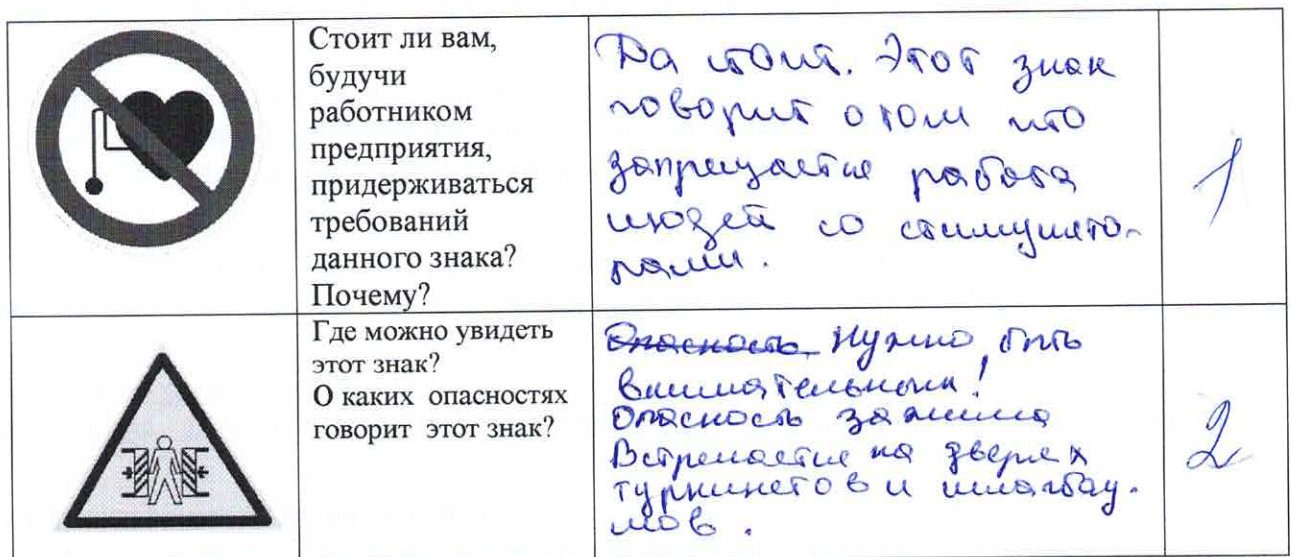 Стоит ли вам,
будучи
работником
предприятия,
придерживаться
требований
данного знака?
Почему?
Да стоит. Этот знак
говорит о том что
запрещается работа
людей со стимулято-
рами.
1
Где можно увидеть
этот знак?
О каких опасностях
говорит этот знак?
Опасность Нужно быть
внимательным!
Опасность зажима
Встречается на дверях
турникетов и шлагбау-
мов.
2